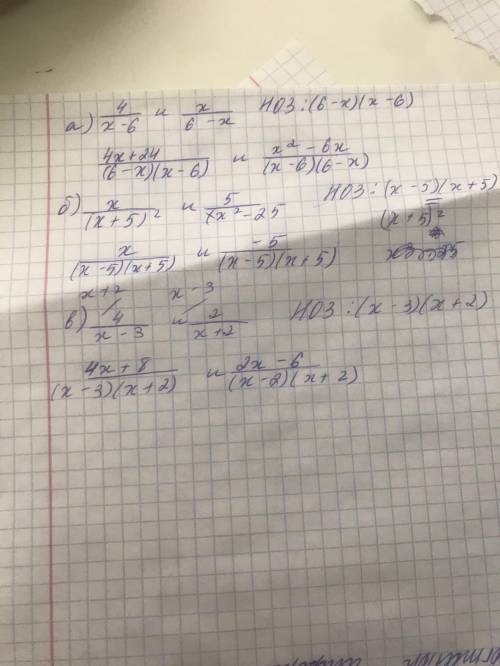 а) 4/(x-6) и x/(6-x) НОЗ: (6-x)(x-6)
(4x+24)/((6-x)(x-6)) и (x²-6x)/((x-6)(6-x))
б) x/(x+5)² и 5/(x²-25) НОЗ: (x-5)(x+5)
(x+5)²
x/((x-5)(x+5)) и -5/((x-5)(x+5))
x+2 x-3
в) 4/(x-3) и 2/(x+2) НОЗ: (x-3)(x+2)
(4x+8)/((x-3)(x+2)) и (2x-6)/((x-2)(x+2))